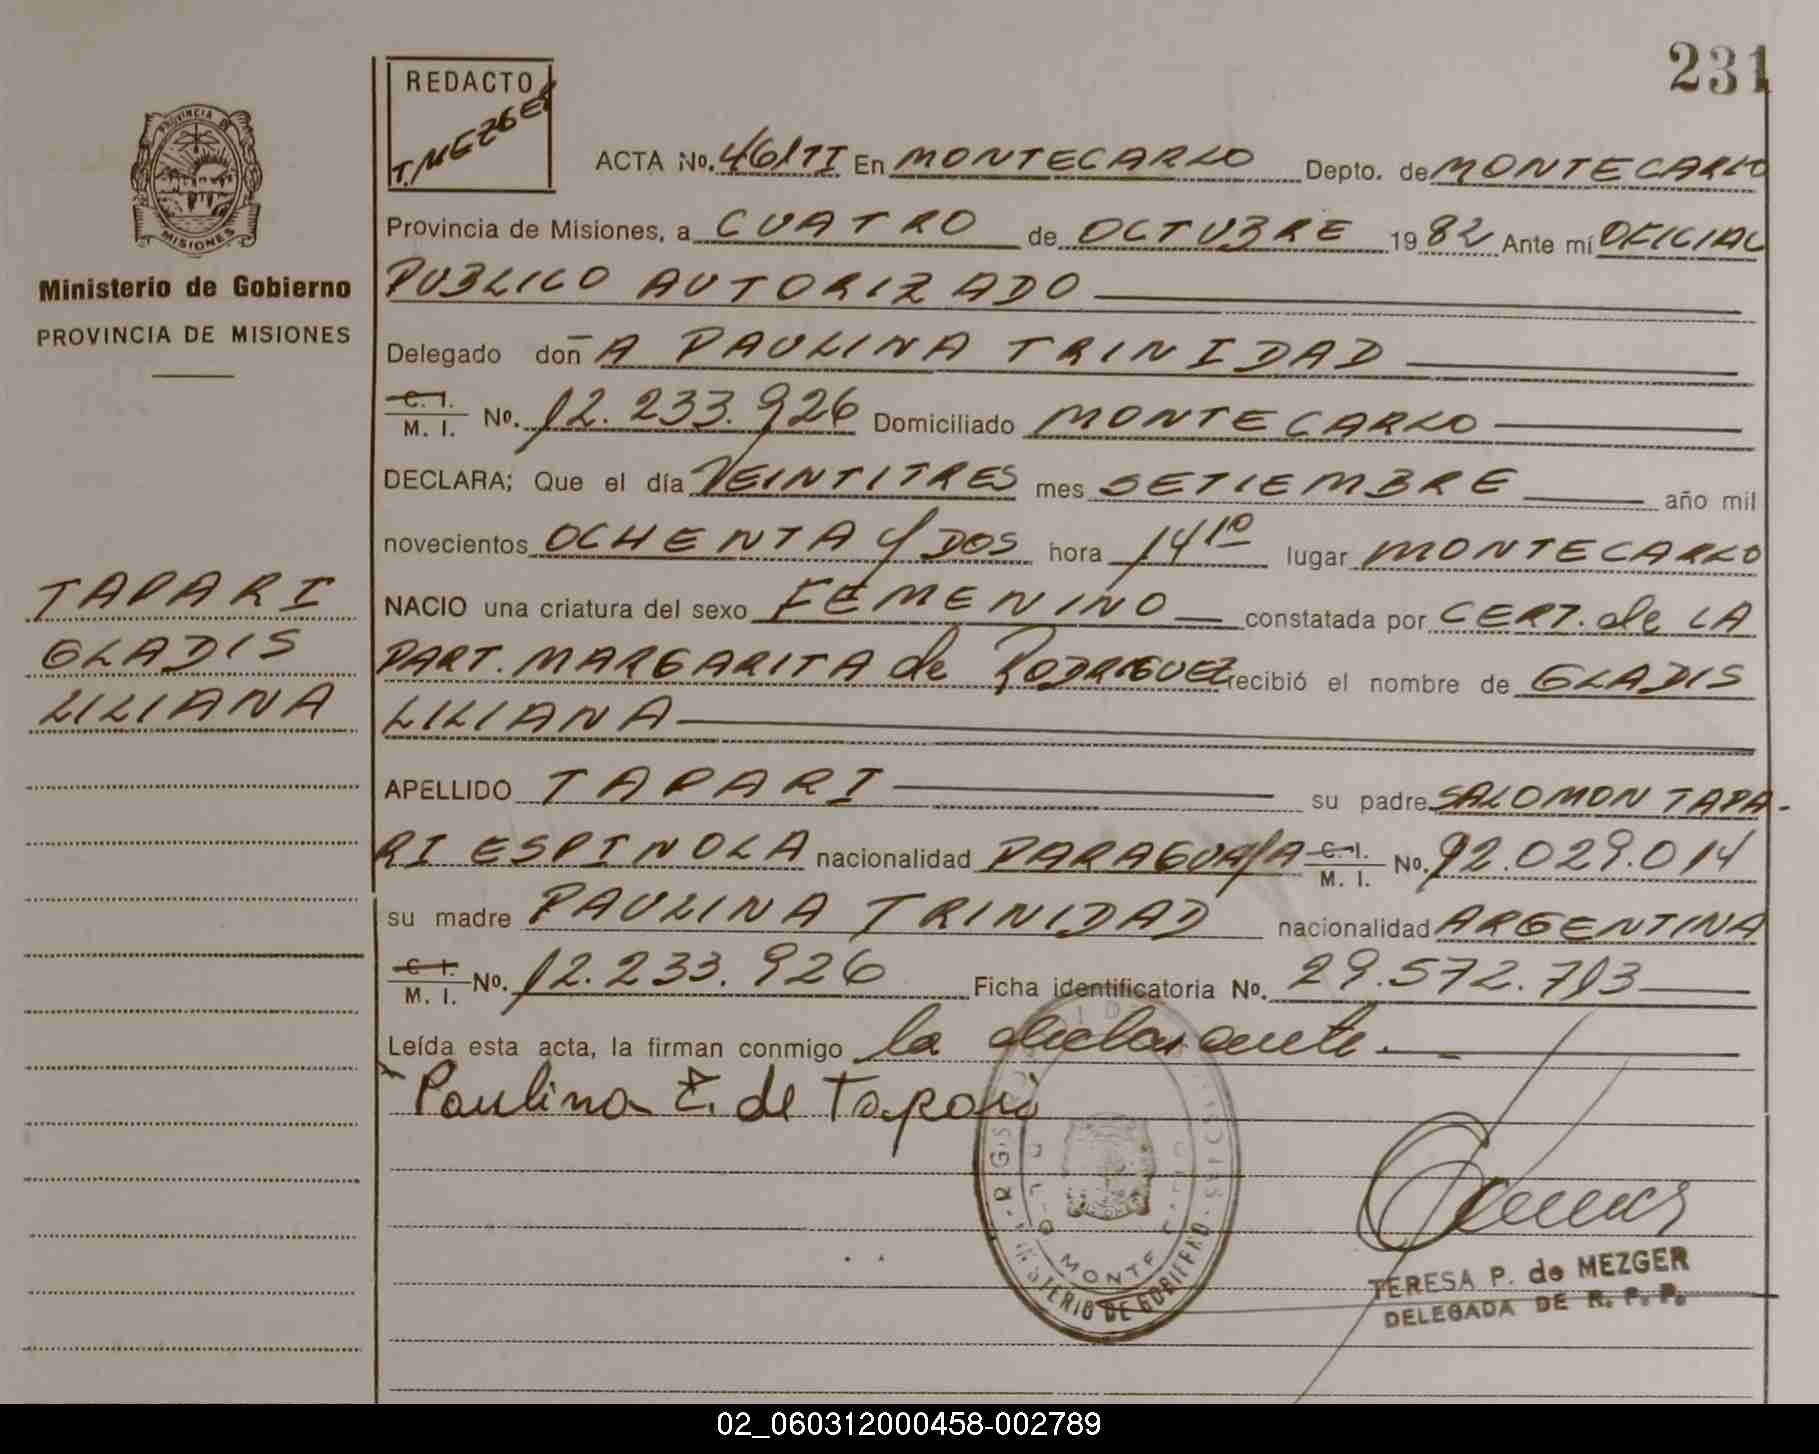 231
REDACTO
T. MEZGER
PROVINCIA DE
MISIONES
Ministerio de Gobierno
PROVINCIA DE MISIONES
ACTA Nº. 461TI En MONTECARLO Depto. de MONTECARLO
Provincia de Misiones, a CUATRO de OCTUBRE 1982 Ante mí OFICIAL
PUBLICO AUTORIZADO
Delegado don A PAULINA TRINIDAD
C. I.
M. I. Nº. 12.233.926 Domiciliado MONTECARLO
DECLARA; Que el día VEINTITRES mes SETIEMBRE año mil
novecientos OCHENTA y DOS hora 14 10 lugar MONTECARLO
NACIO una criatura del sexo FEMENINO constatada por CERT. de LA
PART. MARGARITA de RODRIGUEZ recibió el nombre de GLADIS
LILIANA
TAPARI
GLADIS
LILIANA
APELLIDO TAPARI su padre SALOMON TAPA-
RI ESPINOLA nacionalidad PARAGUAYA C. I. M. I. Nº. 92.029.014
su madre PAULINA TRINIDAD nacionalidad ARGENTINA
C. I.
M. I. Nº. 12.233.926 Ficha identificatoria Nº. 29.572.713
Leída esta acta, la firman conmigo la declarante.
Paulina T. de Tapari
MINISTERIO DE GOBIERNO
TERESA P. de MEZGER
DELEGADA DE R. P. P.
02_060312000458-002789